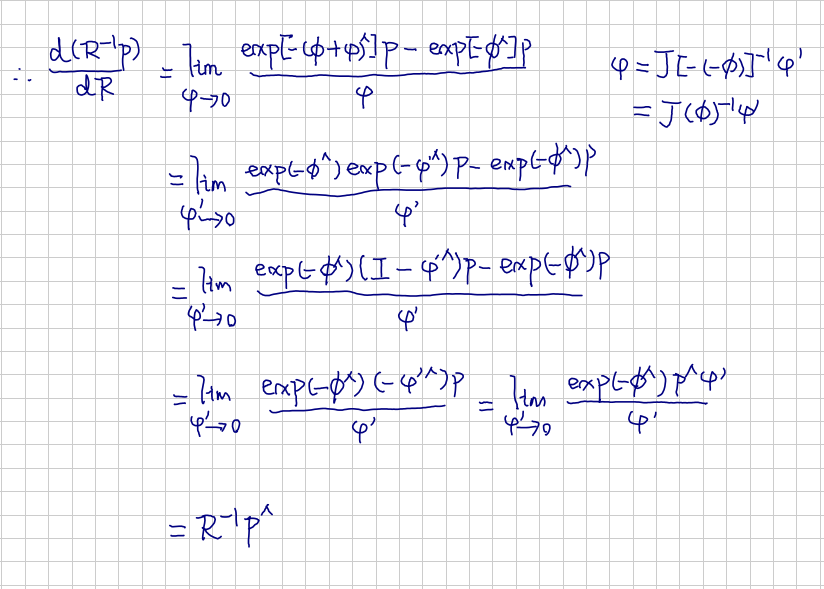 ∴ d(R⁻¹p)/dR = lim φ→0 exp[-(ϕ+φ)^]p - exp[-ϕ^]p / φ
φ = J[-(-ϕ)]⁻¹φ'
= J(ϕ)⁻¹φ'
= lim φ'→0 exp(-ϕ^)exp(-φ'^)p - exp(-ϕ^)p / φ'
= lim φ'→0 exp(-ϕ^)(I - φ'^)p - exp(-ϕ^)p / φ'
= lim φ'→0 exp(-ϕ^)(-φ'^)p / φ' = lim φ'→0 exp(-ϕ^)p^φ' / φ'
= R⁻¹p^